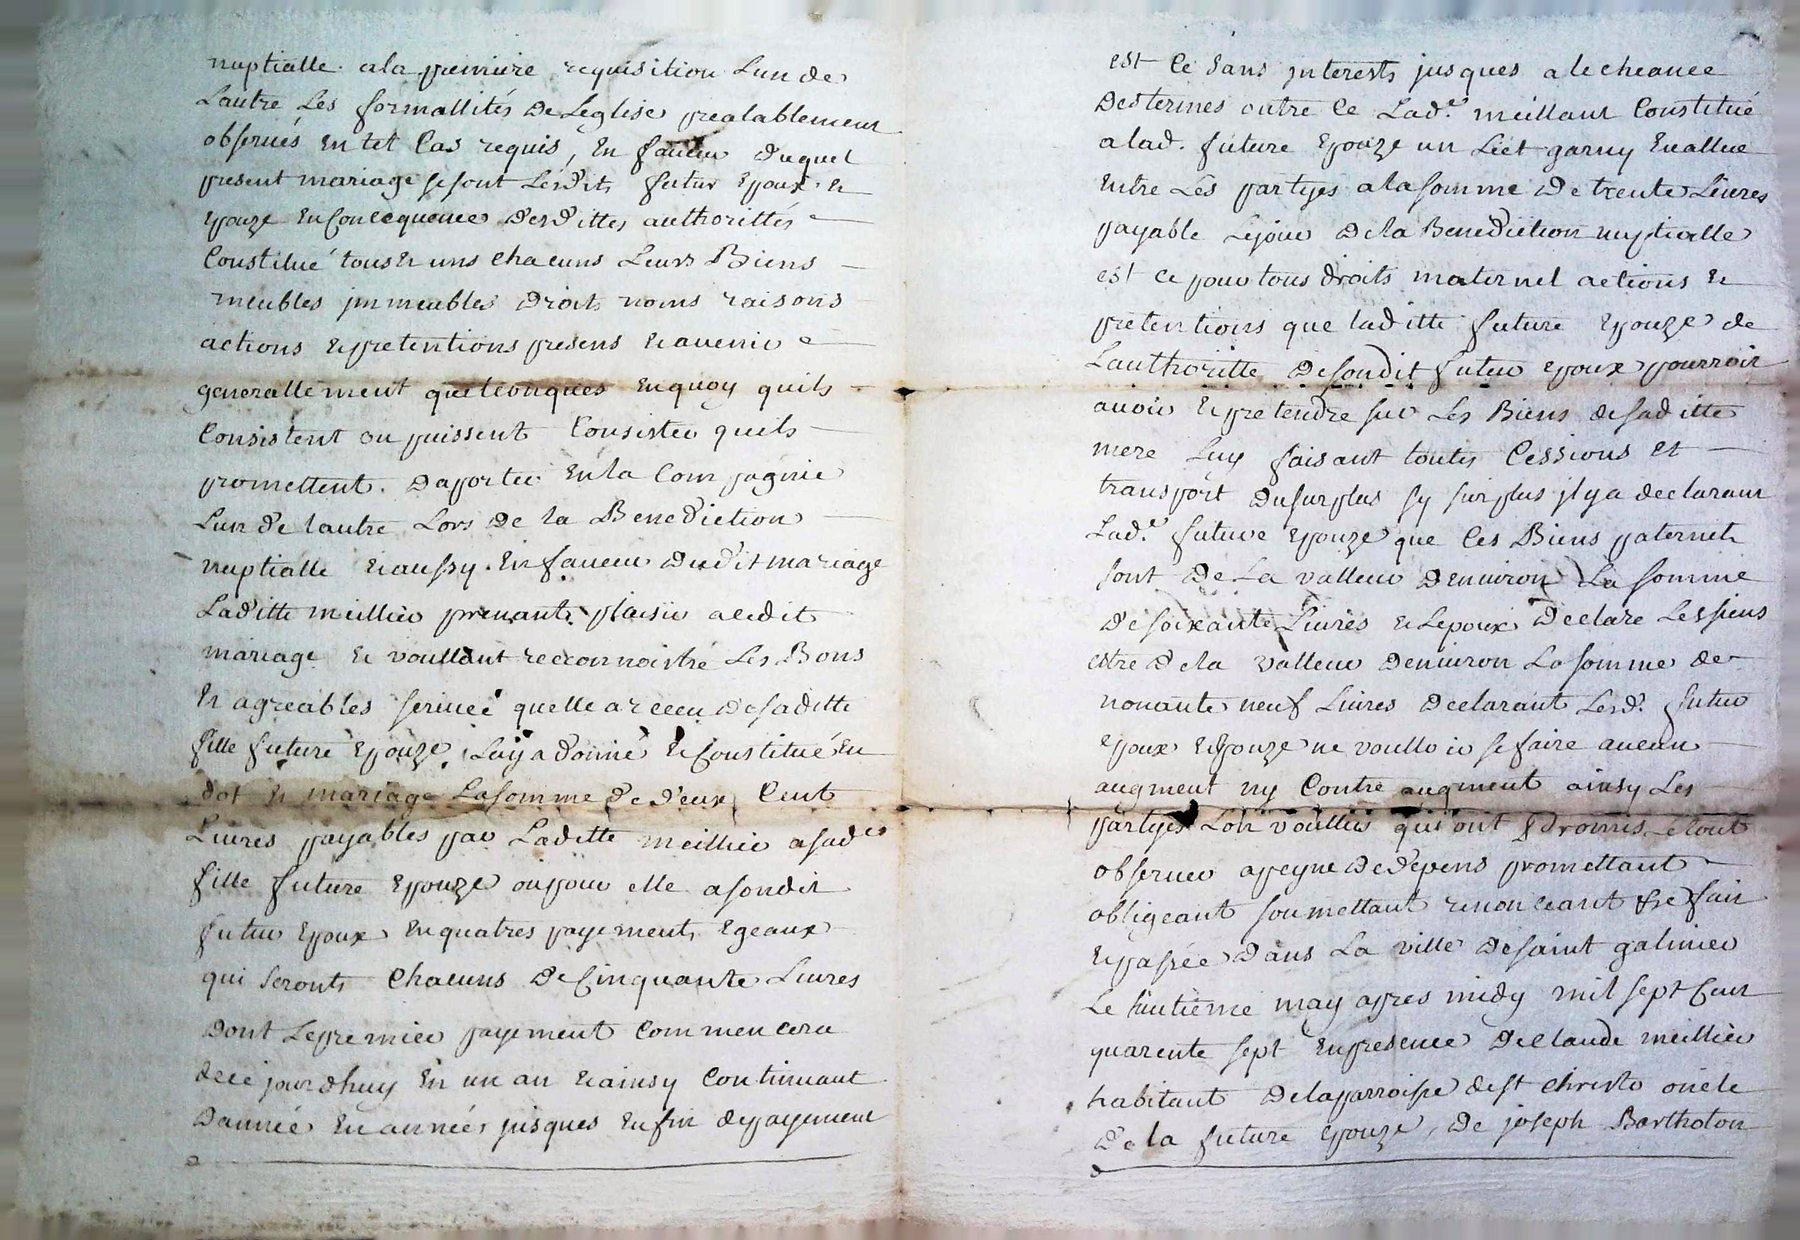 nuptialle a la premiere requisition Lun de
Lautre Les formallités De Leglise prealablement
observés en tel Cas requis, En faveur duquel
present mariage se sont Lesdits futur Epoux et
Epouze en Consequence Desdittes authorittés
Constitué tous et uns chacuns Leurs Biens
meubles immeubles Droits noms raisons
actions et pretentions presens et avenir et
generallement quelconques en quoy quils
Consistent ou puissent Consister quils
promettent Daporter En la Compagnie
Lun de lautre Lors De la Benediction
nuptialle et aussy En faveur Dudit mariage
Laditte meillier prenant plaisir a cedit
mariage et voullant reconnoistre Les Bons
et agreables service quelle a receu De saditte
fille future Epouze, Luy a donné et Constitué En
dot et mariage La somme De Deux Cent
Livres payables par Laditte meillier a sade
fille future Epouze ou pour elle a sondit
futur Epoux En quatres payements Egeaux
qui seronts Chacuns De Cinquante Livres
Dont Le premier payement Commencera
de ce jourdhuy En un an et ainsy Continuant
Dannée En années jusques En fin de payement
est Ce sans interests jusques a lecheance
Des termes outre Ce Lade meillant Constitué
a lad. future Epouze un Lict garny Evallué
Entre Les partyes a la somme De trente Livres
payable Le jour De la Benediction nuptialle
est ce pour tous droits maternel actions et
pretentions que laditte future Epouze de
Lauthoritte De sondit futur Epoux pourroit
avoir et pretendre sur Les Biens de saditte
mere Luy faisant touttes Cessions et
transport Du surplus sy surplus il y a declarant
Lade future Epouze que Ces Biens paternels
sont De La valleur Denviron La somme
De soixante Livres et Lepoux Declare Les siens
estre De la valleur Denviron La somme de
nonante neuf Livres Declarant Lesd. futur
Epoux et Epouze ne voulloir se faire aucun
augment ny Contre augment ainsy Les
partyes Lon voullus qui ont promis Le tout
observer a peyne De Depens promettant
obligeant soumettant renonceant &c fait
et passée Dans La ville De saint galmier
Le huitieme may apres midy mil sept Cent
quarente sept En presence De Claude meillier
habitant De la parroisse de st christo oncle
De la future Epouze, De joseph Bartholon